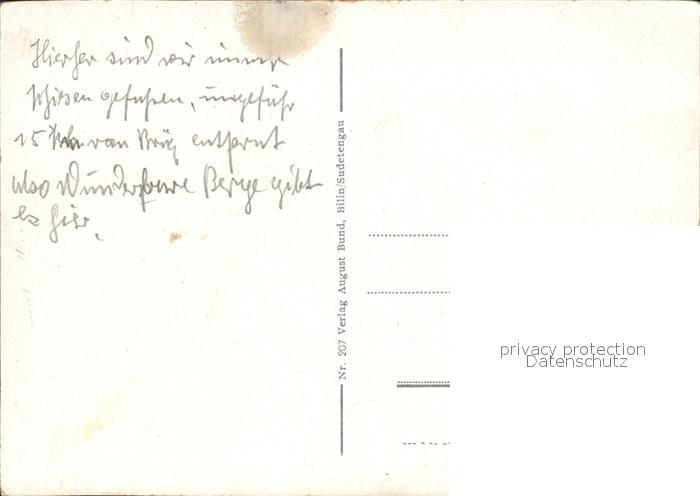 Hierher sind wir immer
schiesen gefahren, ungefähr
15 Km von Brüx entfernt
also Wunderbare Berge gibt
es hier.
Nr. 207 Verlag August Bund, Bilin/Sudetengau
privacy protection
Datenschutz